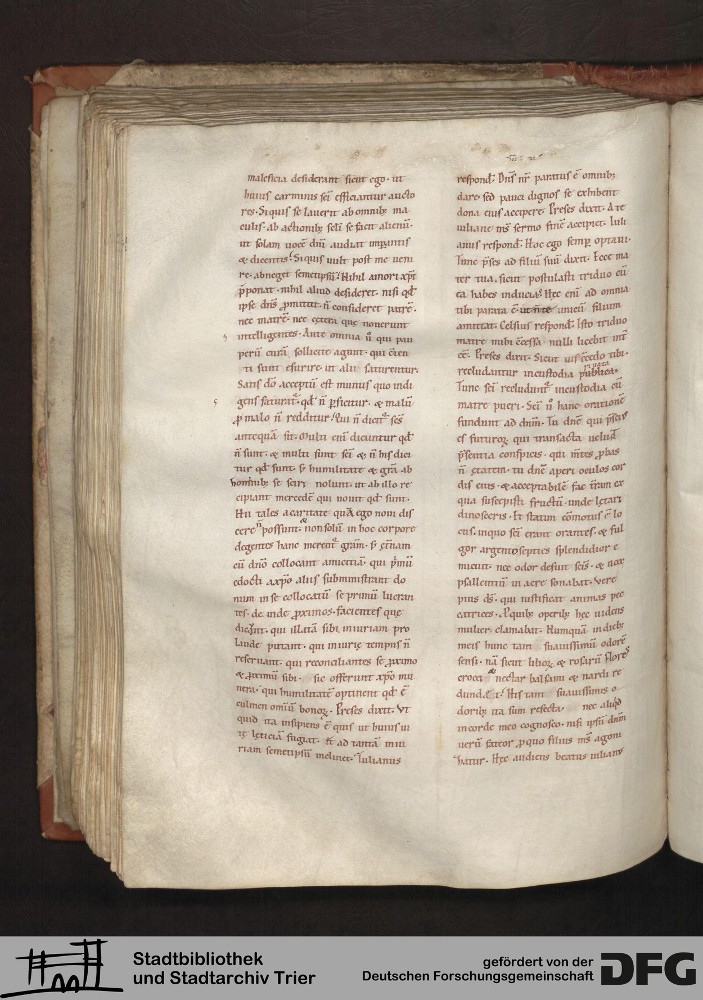 maleficia desiderant sicut ego · ut
huius carminis sci efficiantur aucto
res · Siquis se lauerit ab omnib; ma
culis · ab actionib; scli se facit alienū ·
ut solam uocē dnī audiat
& dicentis · Siquis uult post me ueni
re · abneget semetipsū · Nihil amori xpī
p̄ponat · nihil aliud desideret · nisi qd̄
ipse dnſ promittit · n̄ confideret patrē ·
nec matrē · nec cetera que nouerunt
intelligentes · Ante omnia n̄ qui pau
perū curā sollicite agunt · qui
ti sunt esurire ut alii saturentur
Sans dō acceptū est munus quo indi
gens saturat̄ · qd̄ n̄ & malū
p malo n̄ redditur · Qui n̄ dicit̄ scs
antequā sit · Multi enī dicuntur qd̄
n̄ sunt · & multi sunt sci & n̄ his dici
tur qd̄ sunt · humilitate & grā ab
hominib; se sciri nolunt · ut ab illo re
cipiant mercedē qui nouit qd̄ sunt ·
Hii tales a caritate quā ego nom dis
cere n̄ possunt · non solū in hoc corpore
degentes hanc merent̄ grām ·
cū dnō collocant amicitiā · qui p̄mū
edocti a xpō aliis subministrant do
num in se collocatū · se primū lucran
tes · de inde proximos · facientes que
dicunt · qui illatā sibi iniuriam pro
laude putant · qui iniurię tempus n̄
reseruant · qui reconciliantes se proximo
& proximū sibi · sic offerunt xpō mu
nera · qui humilitatē optinent qd̄ ē
culmen omniū bonoꝝ · Preses dixit · Ut
quid ita insipiens ē quis ut huius ui
tę lęticiā fugiat · & ad tantā iniu
riam semetipsū inclinet · Iulianus
respond; Dn̄s nr̄ paratus ē omnib;
dare · sed pauci dignos se exhibent
dona eius accipere · Preses dixit · A te
iuliane m̄s sermo finē accipiet · Iuli
anus respond; Hoc ego semp optaui ·
Tunc p̄ses ad filiū suū dixit · Ecce ma
ter tua · sicut postulasti triduo cū
ea habes inducias · Hęc enī ad omnia
tibi parata ē · ut n̄ te unicū filium
amittat · Celsius respond; Isto triduo
matre mihi concessa nulli licebit int̄
ēē · Preses dixit · Sicut uis concedo tibi ·
recludantur incustodia priuata publica ·
Tunc sci recludunt̄ incustodia cū
matre pueri · Sci n̄ hanc orationē
fundunt ad dnm · Tu dnē qui
es futuroꝝ qui transacta uelud
p̄sentia conspicis · qui mentes probas
n̄ ętatem · tu dnē aperi oculos cor
dis eius · & acceptabilē fac terram ex
qua suscepisti fructū · unde lętari
dinosceris · Et statim cōmotus ē lo
cus · inquo sci erant orantes · & ful
gor argento septies splendidior e
micuit · nec odor defuit scis · & uox
psallentiū in aere sonabat · Vere
pius ds · qui iustificat animas pec
catrices · Aquib; operib; hęc uidens
mulier clamabat · Numquā in dieb;
meis hunc tam suauissimū odorē
sensi · nā sicut lilioꝝ & rosarū flores
croci & nectar balsami & nardi re
dund · His tam suauissimis o
dorib; ita sum refecta · nec aliud
in corde meo cognosco · nisi ipsū dnm
uerū fateor · pro quo filius m̄s agoni
zatur · Hęc audiens beatus iulianus
Stadtbibliothek
und Stadtarchiv Trier
gefördert von der
Deutschen Forschungsgemeinschaft
DFG